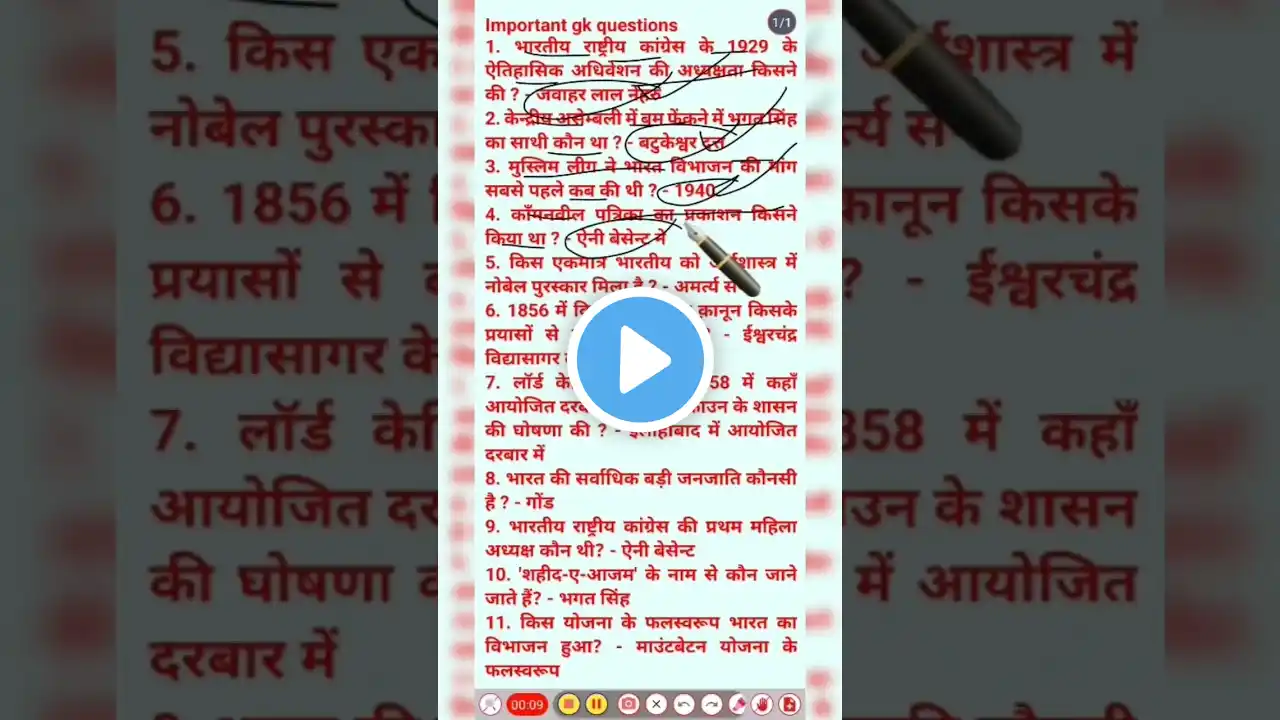 Important gk questions
1/1
1. भारतीय राष्ट्रीय कांग्रेस के 1929 के
ऐतिहासिक अधिवेशन की अध्यक्षता किसने
की ? - जवाहर लाल नेहरु
2. केन्द्रीय असेम्बली में बम फेंकने में भगत सिंह
का साथी कौन था ? - बटुकेश्वर दत्त
3. मुस्लिम लीग ने भारत विभाजन की मांग
सबसे पहले कब की थी ? - 1940
4. कॉमनवील पत्रिका का प्रकाशन किसने
किया था ? - ऐनी बेसेन्ट ने
5. किस एकमात्र भारतीय को अर्थशास्त्र में
नोबेल पुरस्कार मिला है ? - अमर्त्य से
6. 1856 में क़ानून किसके
प्रयासों से - ईश्वरचंद्र
विद्यासागर
7. लॉर्ड के 58 में कहाँ
आयोजित के शासन
की घोषणा की ? - इलाहाबाद में आयोजित
दरबार में
8. भारत की सर्वाधिक बड़ी जनजाति कौनसी
है ? - गोंड
9. भारतीय राष्ट्रीय कांग्रेस की प्रथम महिला
अध्यक्ष कौन थी? - ऐनी बेसेन्ट
10. 'शहीद-ए-आजम' के नाम से कौन जाने
जाते हैं? - भगत सिंह
11. किस योजना के फलस्वरूप भारत का
विभाजन हुआ? - माउंटबेटन योजना के
फलस्वरूप
00:09